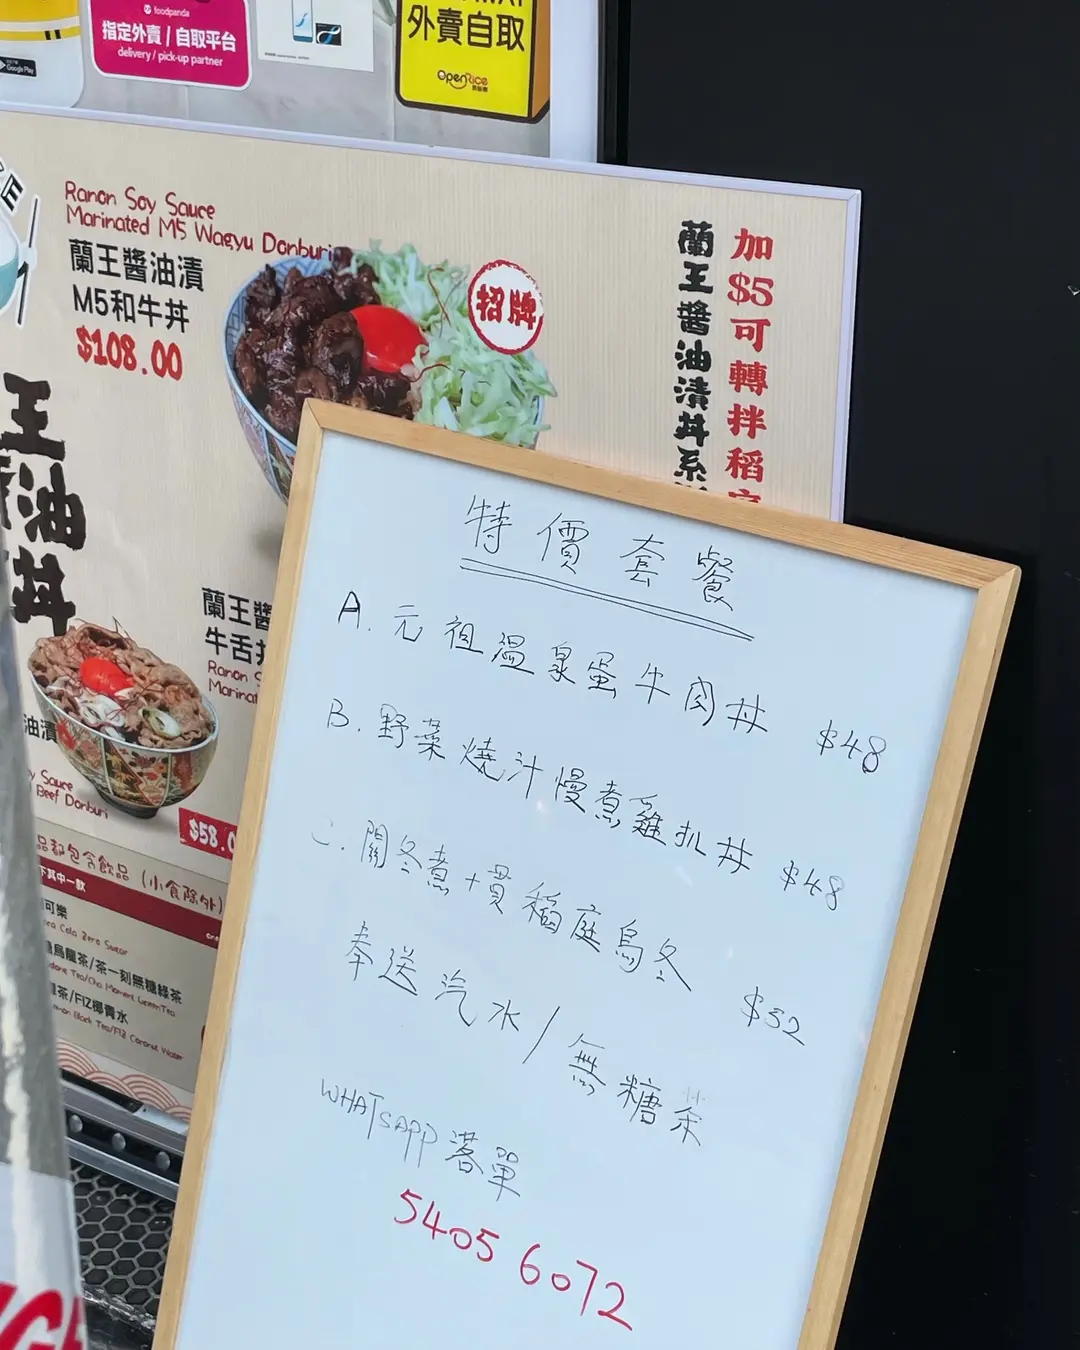 foodpanda
指定外賣 / 自取平台
delivery / pick-up partner
Google Play
外賣自取
OpenRice
Ranon Soy Sauce
Marinated M5 Wagyu Donburi
蘭王醬油漬
M5和牛丼
$108.00
招牌
加$5可轉拌稻
蘭王醬油漬丼系
王
油
丼
蘭王醬
牛舌
Ranon
油漬
Sauce
Beef Donburi
$58.0
品都包含飲品 (小食除外)
下其中一款
可樂
Cola Zero Sugar
烏龍茶/茶一刻無糖綠茶
茶/FIZ椰青水
Black Tea/FIZ Coconut Water
特價套餐
A. 元祖溫泉蛋牛肉丼 $48
B. 野菜燒汁慢煮雞扒丼 $48
C. 關冬煮+貫稻庭烏冬 $52
奉送汽水/無糖茶
WHATSAPP落單
5405 6072